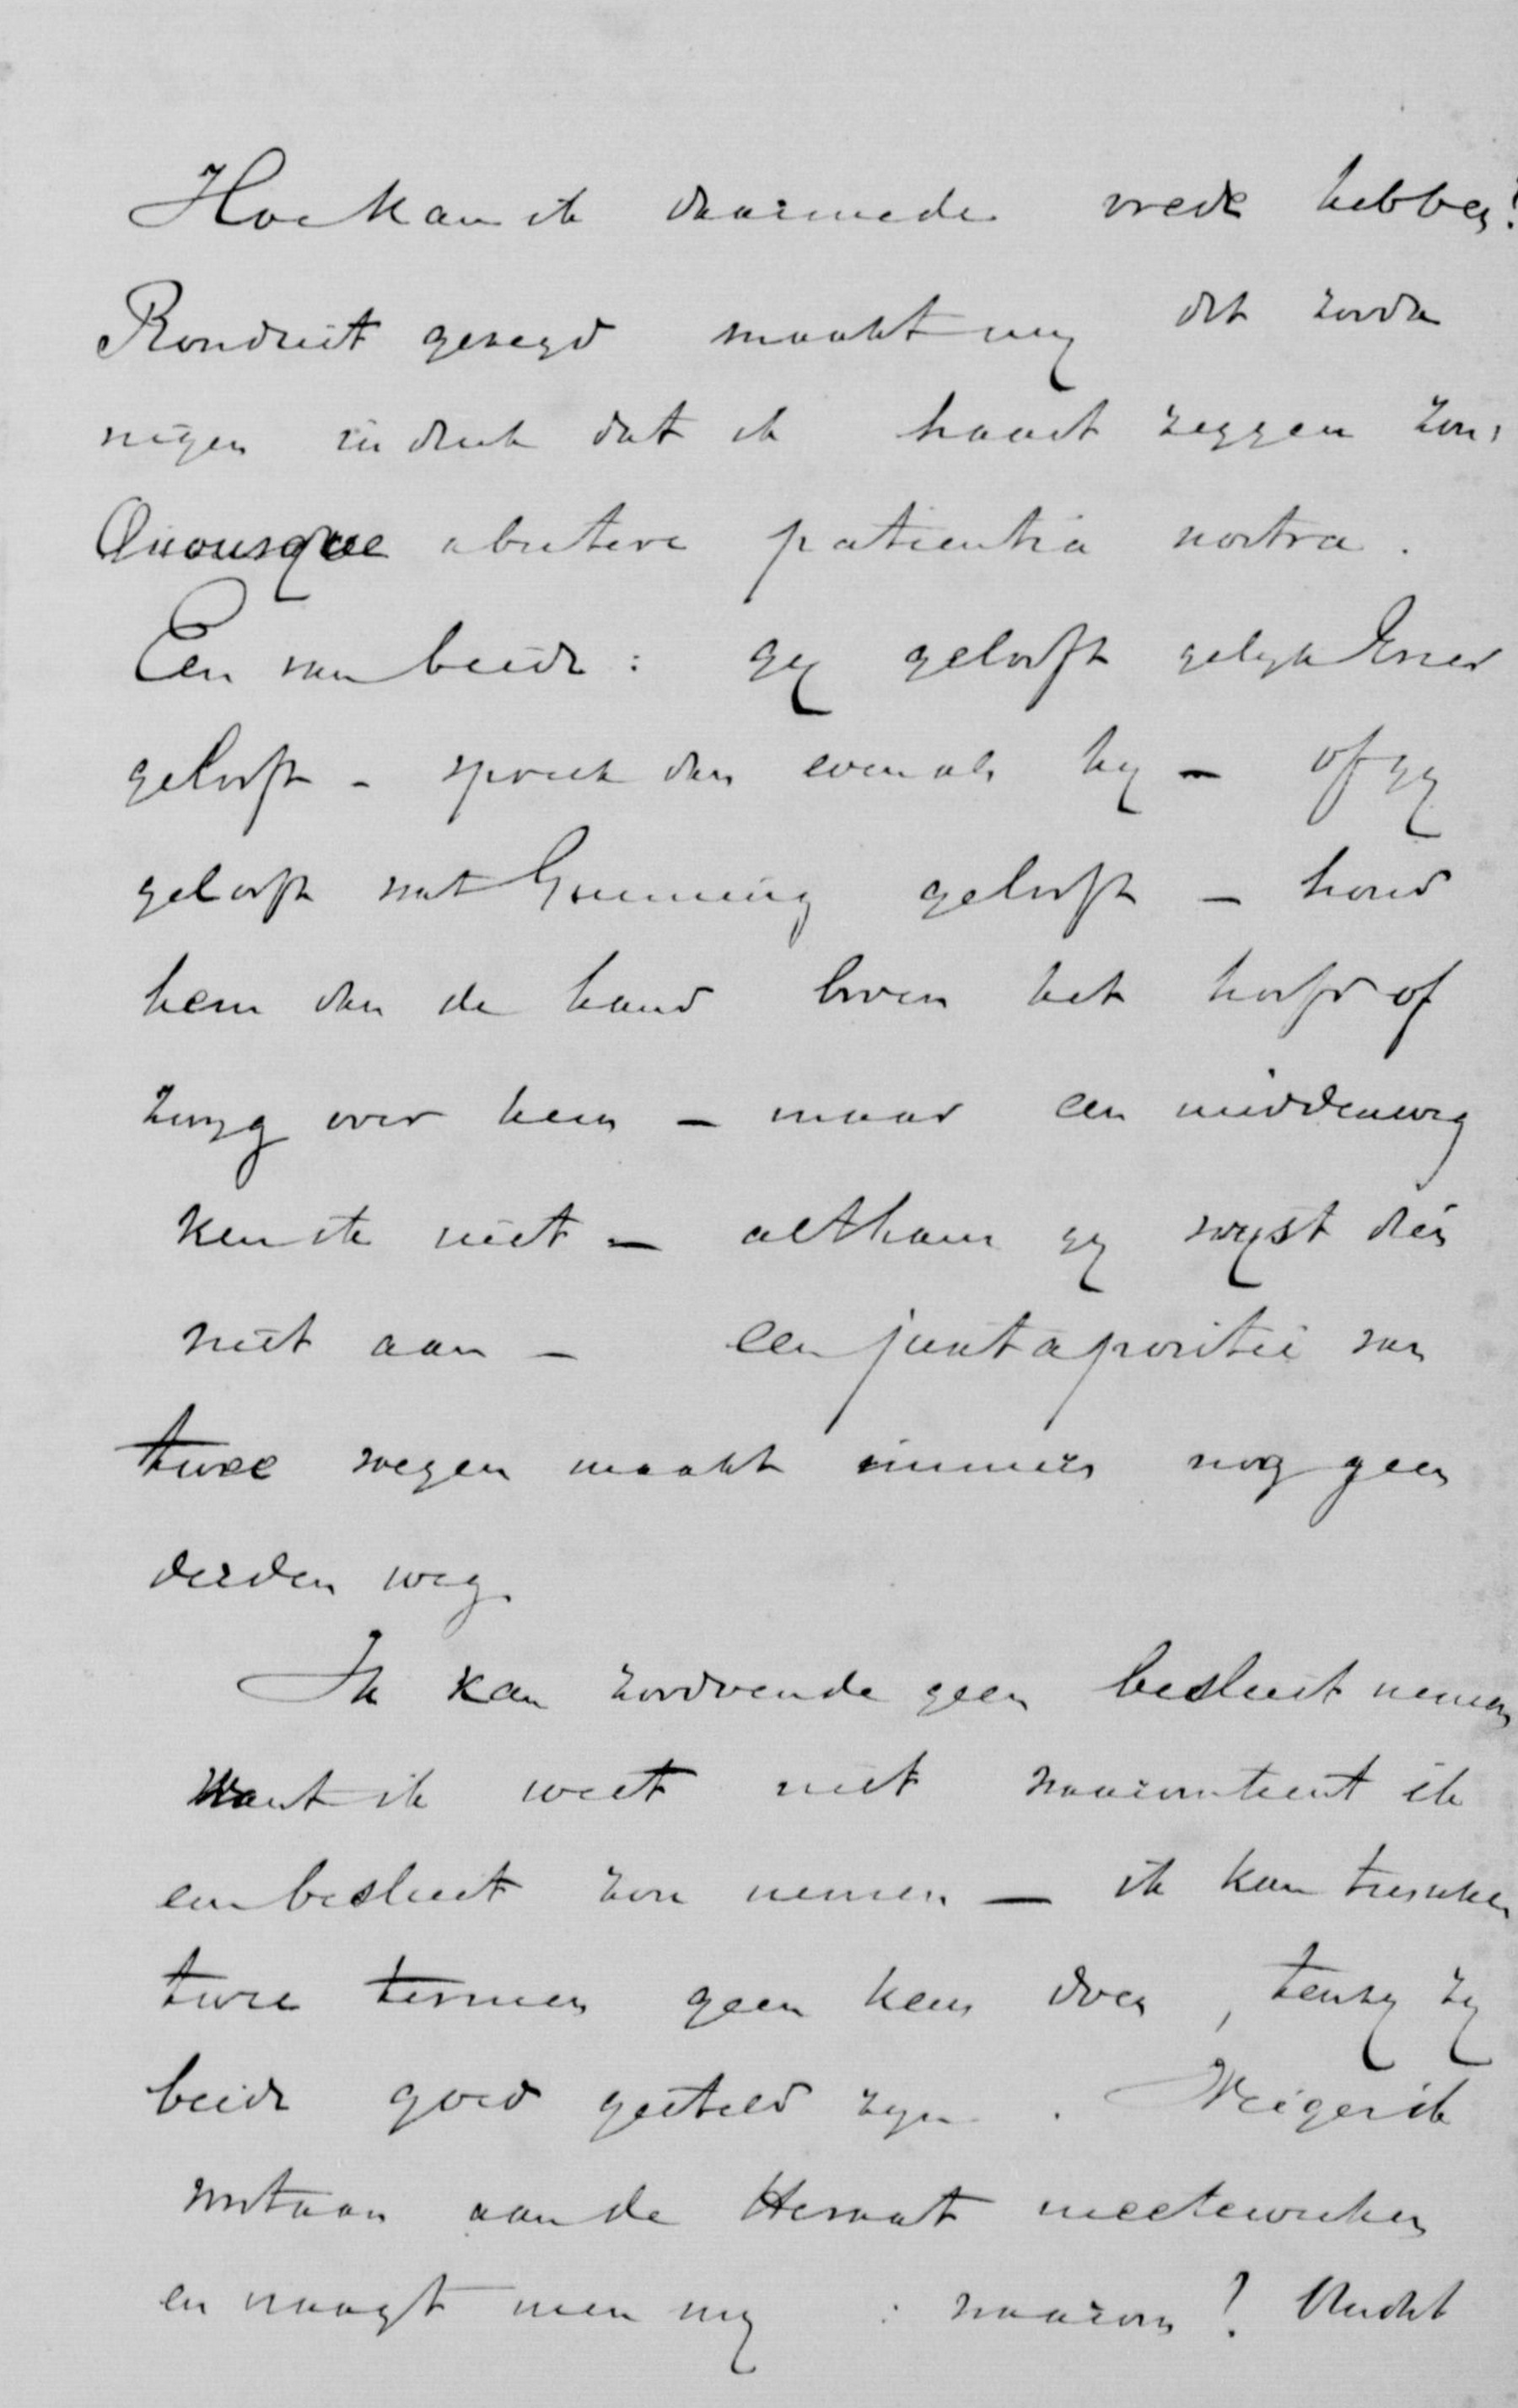 Hoe kan ik daarmede vrede hebben?
Ronduit gezegd maakt my dit zooda
nigen indruk dat ik haast zeggen zou:
Quousque abutere patientia nostra.
Een van beide: gy gelooft gelyk
gelooft – spreek dan evenals hy – of gy
gelooft wat Gunning gelooft – houd
hem dan de hand boven het hoofd of
zwyg over hem – maar een middenweg
ken ik niet – althans gy wyst dien
niet aan – een juxtapositie van
twee wegen maakt immers nog geen
derden weg.
Ik kan zoodoende geen besluit nemen
want ik weet niet waaromtrent ik
een besluit zou nemen – ik kan tusschen
twee termen geen keus doen, tenzy zy
beide goed gesteld zyn. Weiger ik
voortaan aan de Heraut meetewerken
en vraagt men my: waarom?